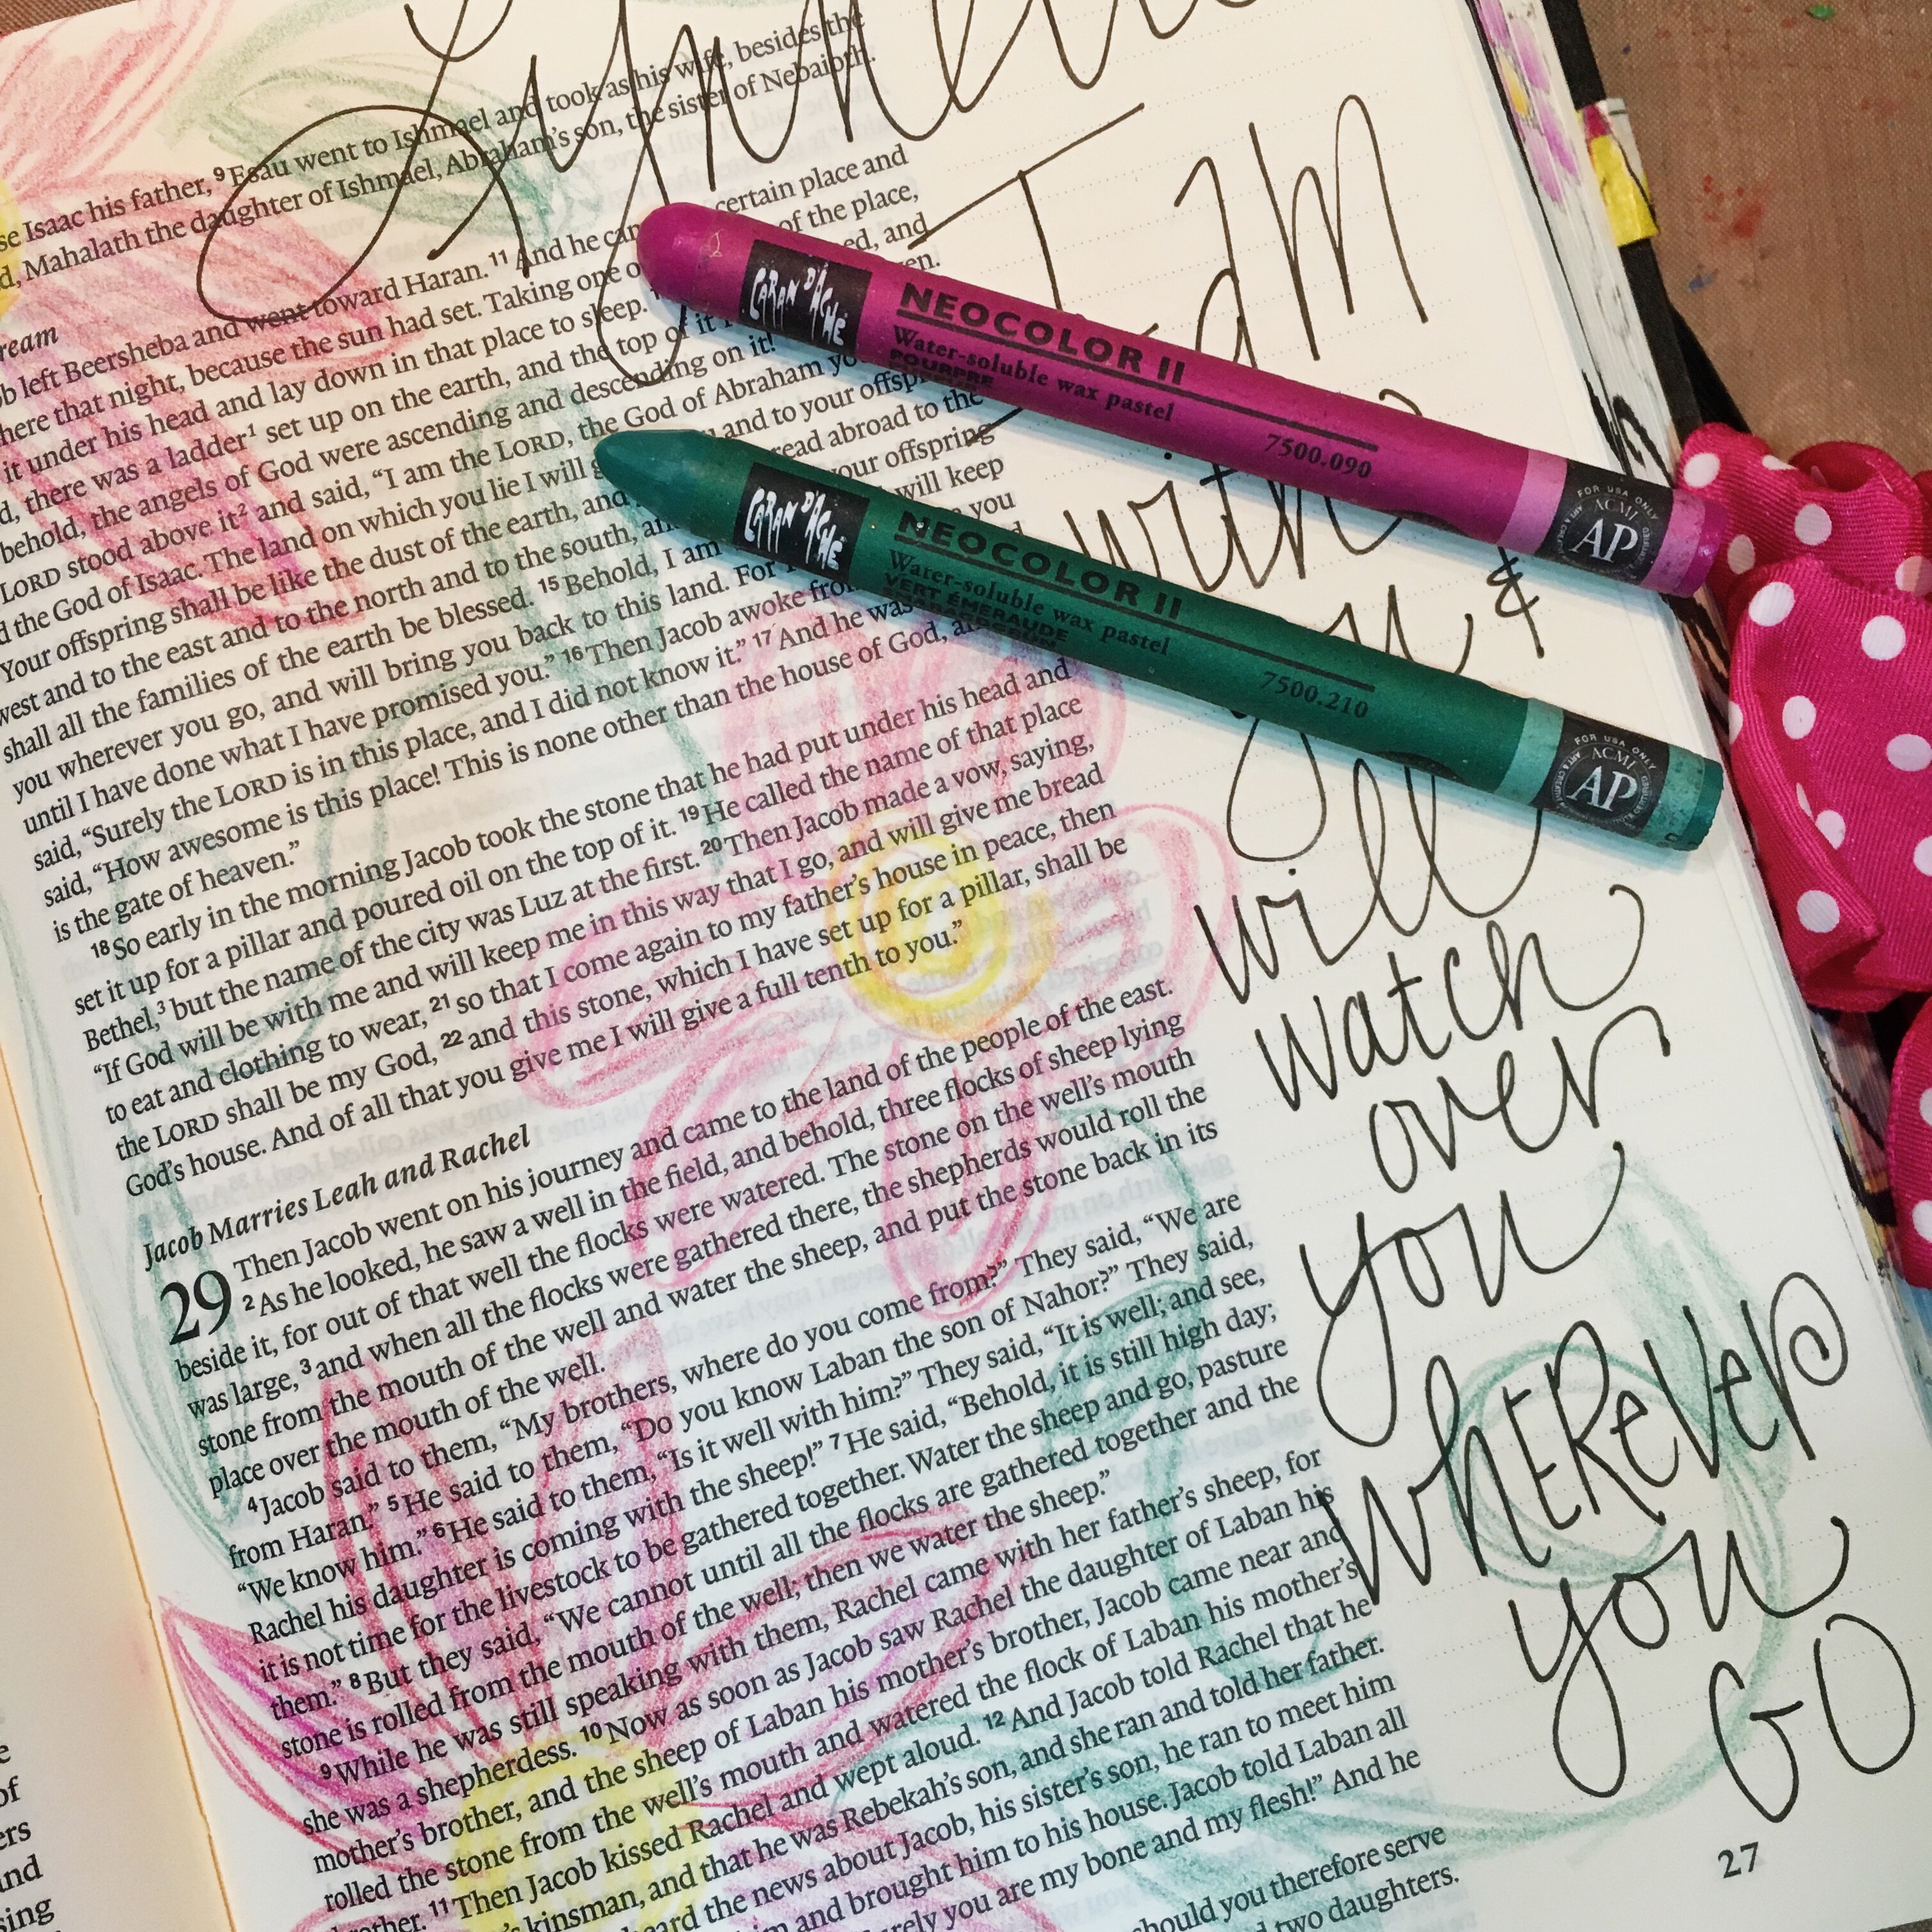 se Isaac his father, 9 Esau went to Ishmael and took as his wife, besides the
d, Mahalath the daughter of Ishmael, Abraham's son, the sister of Nebaioth.
ream
b left Beersheba and went toward Haran. 11 And he can certain place and
here that night, because the sun had set. Taking one o of the place,
it under his head and lay down in that place to sleep. ed, and
d, there was a ladder1 set up on the earth, and the top of it en.
behold, the angels of God were ascending and descending on it!
LORD stood above it2 and said, "I am the LORD, the God of Abraham yo
d the God of Isaac. The land on which you lie I will g and to your offspr
Your offspring shall be like the dust of the earth, and read abroad to the
west and to the east and to the north and to the south, an your offspring
shall all the families of the earth be blessed. 15 Behold, I am will keep
you wherever you go, and will bring you back to this land. For you
until I have done what I have promised you." 16 Then Jacob awoke fro
said, "Surely the LORD is in this place, and I did not know it." 17 And he was
said, "How awesome is this place! This is none other than the house of God, a
is the gate of heaven."
18 So early in the morning Jacob took the stone that he had put under his head and
set it up for a pillar and poured oil on the top of it. 19 He called the name of that place
Bethel,3 but the name of the city was Luz at the first. 20 Then Jacob made a vow, saying,
"If God will be with me and will keep me in this way that I go, and will give me bread
to eat and clothing to wear, 21 so that I come again to my father's house in peace, then
the LORD shall be my God, 22 and this stone, which I have set up for a pillar, shall be
God's house. And of all that you give me I will give a full tenth to you."
Jacob Marries Leah and Rachel
29 Then Jacob went on his journey and came to the land of the people of the east.
2 As he looked, he saw a well in the field, and behold, three flocks of sheep lying
beside it, for out of that well the flocks were watered. The stone on the well's mouth
was large, 3 and when all the flocks were gathered there, the shepherds would roll the
stone from the mouth of the well and water the sheep, and put the stone back in its
place over the mouth of the well.
4 Jacob said to them, "My brothers, where do you come from?" They said, "We are
from Haran." 5 He said to them, "Do you know Laban the son of Nahor?" They said,
"We know him." 6 He said to them, "Is it well with him?" They said, "It is well; and see,
Rachel his daughter is coming with the sheep!" 7 He said, "Behold, it is still high day;
it is not time for the livestock to be gathered together. Water the sheep and go, pasture
them." 8 But they said, "We cannot until all the flocks are gathered together and the
stone is rolled from the mouth of the well; then we water the sheep."
9 While he was still speaking with them, Rachel came with her father's sheep, for
she was a shepherdess. 10 Now as soon as Jacob saw Rachel the daughter of Laban his
mother's brother, and the sheep of Laban his mother's brother, Jacob came near and
rolled the stone from the well's mouth and watered the flock of Laban his mother's
brother. 11 Then Jacob kissed Rachel and wept aloud. 12 And Jacob told Rachel that he
's kinsman, and that he was Rebekah's son, and she ran and told her father.
eard the news about Jacob, his sister's son, he ran to meet him
im and brought him to his house. Jacob told Laban all
rely you are my bone and my flesh!" And he
hould you therefore serve
two daughters.
27
I am
with
you &
will
watch
over
you
WHEREVER
you
GO
CARAN D'ACHE
NEOCOLOR II
Water-soluble wax pastel
POURPRE
7500.090
FOR USA ONLY
ACMI
AP
CARAN D'ACHE
NEOCOLOR II
Water-soluble wax pastel
VERT ÉMERAUDE
7500.210
FOR USA ONLY
ACMI
AP